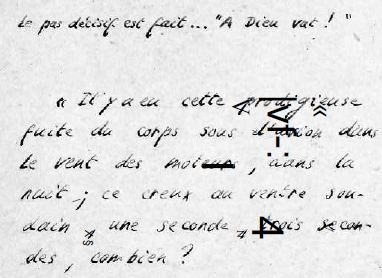 Le pas décisif est fait... "A Dieu vat ! "
« Il y a eu cette prodigieuse
fuite du corps sous l'avion dans
le vent des moteurs, dans la
nuit ; ce creux au ventre sou-
dain, une seconde, trois secon-
des, combien ?